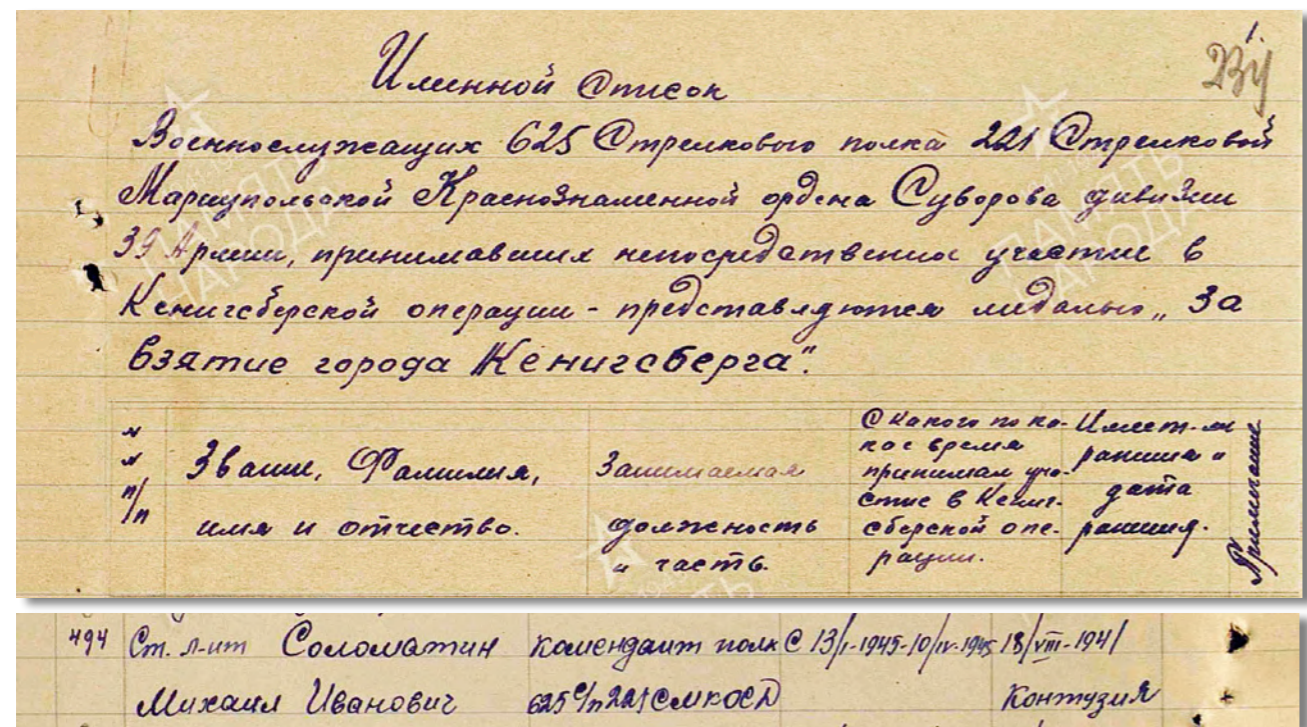 1.
Именной Список
Военнослужащих 625 Стрелкового полка 221 Стрелковой
Мариупольской Краснознаменной ордена Суворова дивизии
39 Армии, принимавших непосредственное участие в
Кенигсберской операции - представляются медалью „За
взятие города Кенигсберга".
№ № п/п
Звание, Фамилия,
имя и отчество.
Занимаемая
должность
и часть.
С какого по ка-
кое время
принимал уча-
стие в Кениг-
сберской опе-
рации.
Имеет-ли
ранения и
дата
ранения.
Примечание
494 Ст. л-нт Соломатин комендант полк С 13/I-1945-10/IV-1945 18/VIII-1941
Михаил Иванович 625 с/п 221 СМКОСД Контузия
ПАМЯТЬ
НАРОДА
ПАМЯТЬ
НАРОДА